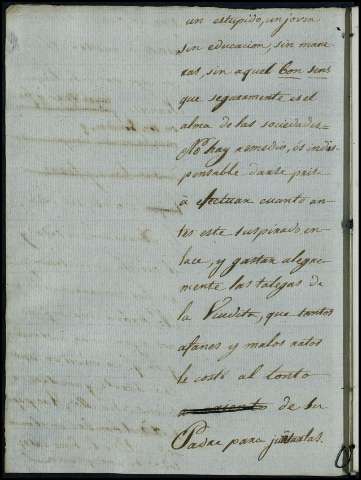 un estupido, un joven
sin educacion, sin mane
ras, sin aquel Bon sens
que seguramente es el
alma de las sociedades=
No hay remedio, es indis
pensable darse prisa
à efectuar cuanto an
tes este suspirado en
lace, y gastar alegre
mente las talegas de
la Viudita, que tantos
afanes y malos ratos
le costó al tonto
de su
Padre para juntarlas.